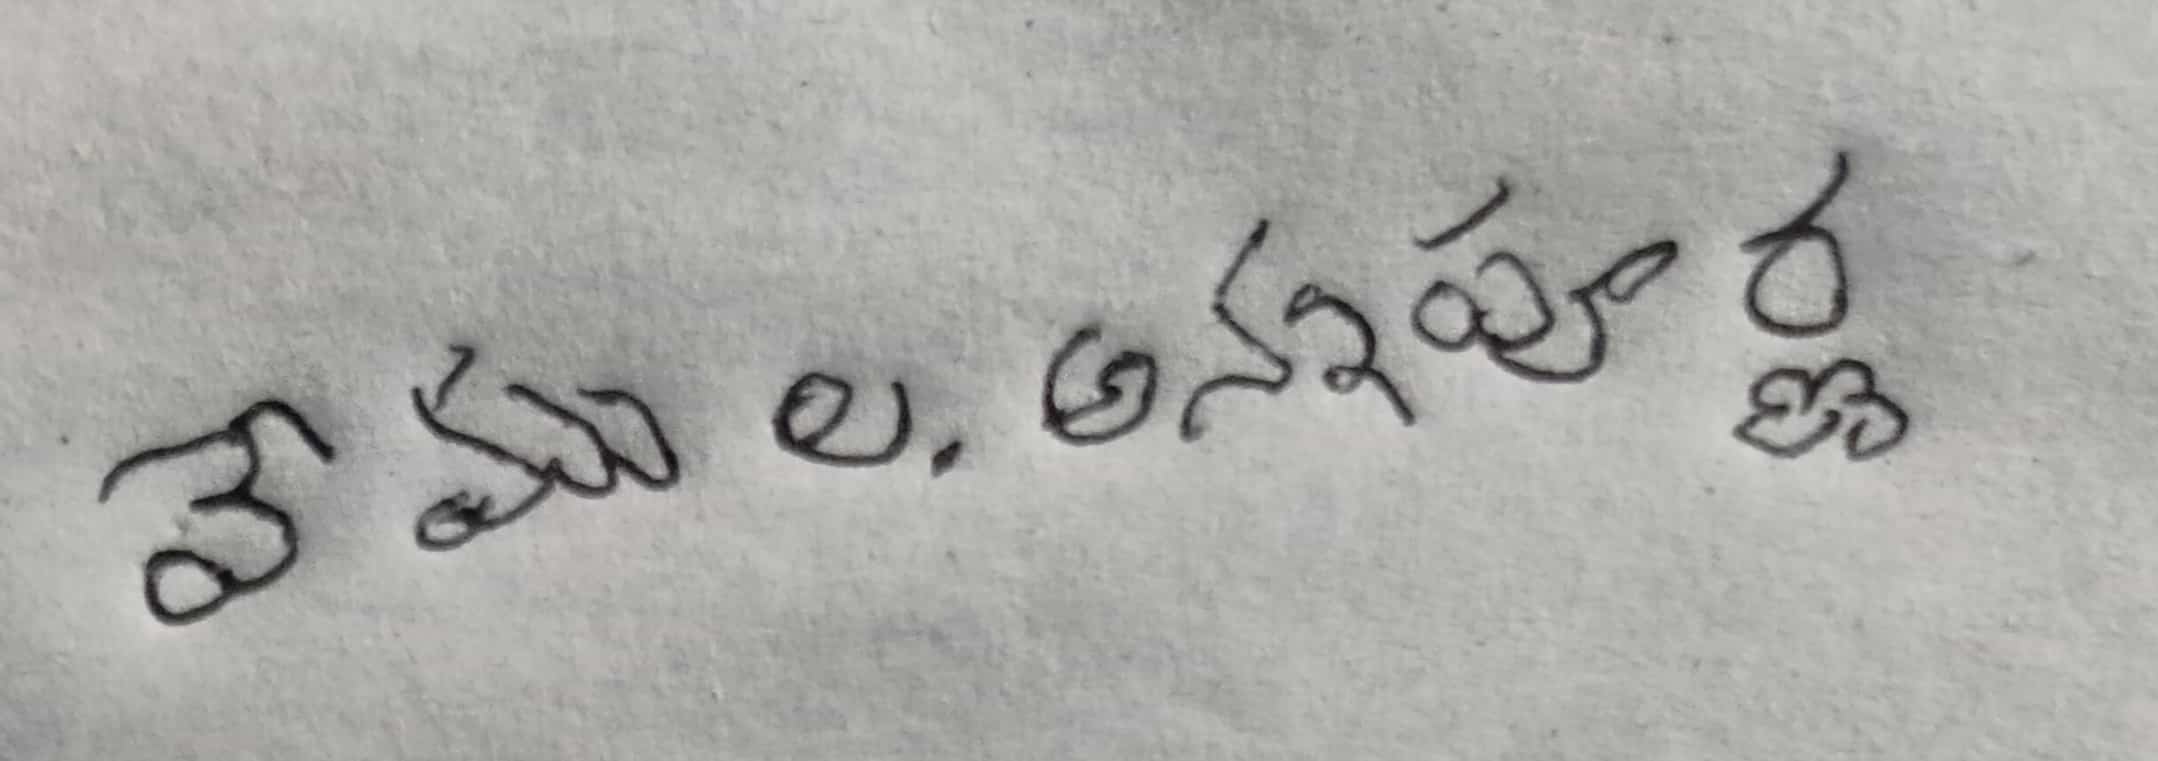 వేముల. అన్నపూర్ణ